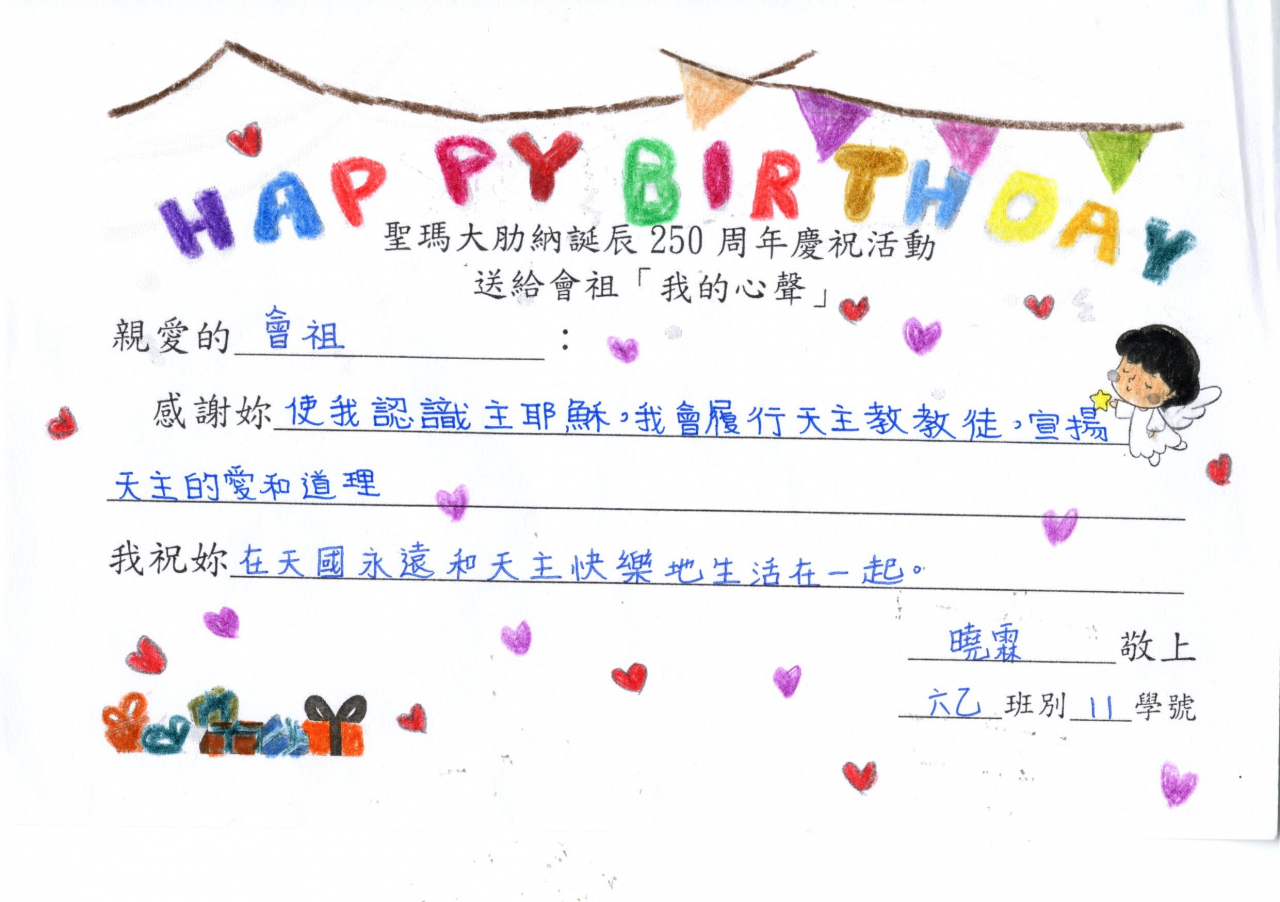 HAPPY BIRTHDAY
聖瑪大肋納誕辰 250 周年慶祝活動
送給會祖「我的心聲」
親愛的 會祖 :
感謝妳 使我認識主耶穌,我會履行天主教教徒,宣揚
天主的愛和道理
我祝妳 在天國永遠和天主快樂地生活在一起。
曉霖 敬上
六乙 班別 11 學號